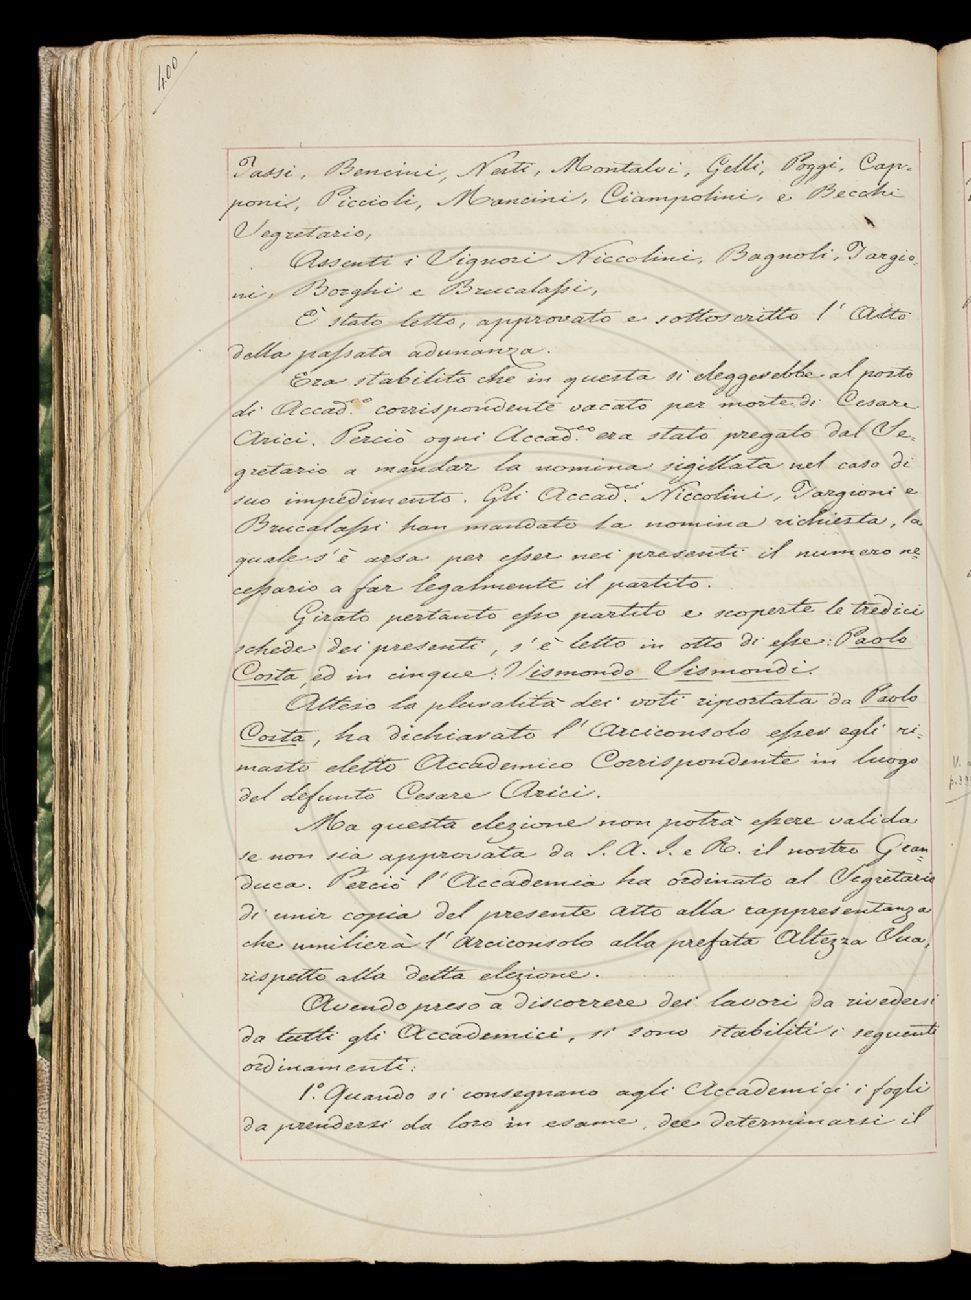 400
Tassi, Bencini, Nesti, Montalvi, Gelli, Poggi, Cap-
poni, Piccioli, Mancini, Ciampolini, e Becchi
Segretario,
Assenti i Signori Niccolini, Bagnoli, Targio-
ni, Borghi e Brucalassi,
È stato letto, approvato e sottoscritto l' Atto
della passata adunanza.
Era stabilito che in questa si eleggerebbe al posto
di Accad.co corrispondente vacato per morte di Cesare
Arici. Perciò ogni Accad.co era stato pregato dal Se-
gretario a mandar la nomina sigillata nel caso di
suo impedimento. Gli Accad.ci Niccolini, Targioni e
Brucalassi han mandato la nomina richiesta, la
quale s'è arsa per esser nei presenti il numero ne-
cessario a far legalmente il partito.
Girato pertanto esso partito e scoperte le tredici
schede dei presenti, s'è letto in otto di esse: Paolo
Costa, ed in cinque: Vismondo Sismondi.
Atteso la pluralità dei voti riportata da Paolo
Costa, ha dichiarato l' Arciconsolo esser egli ri-
masto eletto Accademico Corrispondente in luogo
del defunto Cesare Arici.
Ma questa elezione non potrà essere valida
se non sia approvata da S. A. I. e R. il nostro Gran
duca. Perciò l' Accademia ha ordinato al Segretario
di unir copia del presente atto alla rappresentanza
che umilierà l' arciconsolo alla prefata Altezza Sua,
rispetto alla detta elezione.
Avendo preso a discorrere dei lavori da rivedersi
da tutti gli Accademici, si sono stabiliti i seguenti
ordinamenti:
1.° Quando si consegnano agli Accademici i fogli
da prendersi da loro in esame, dee determinarsi il